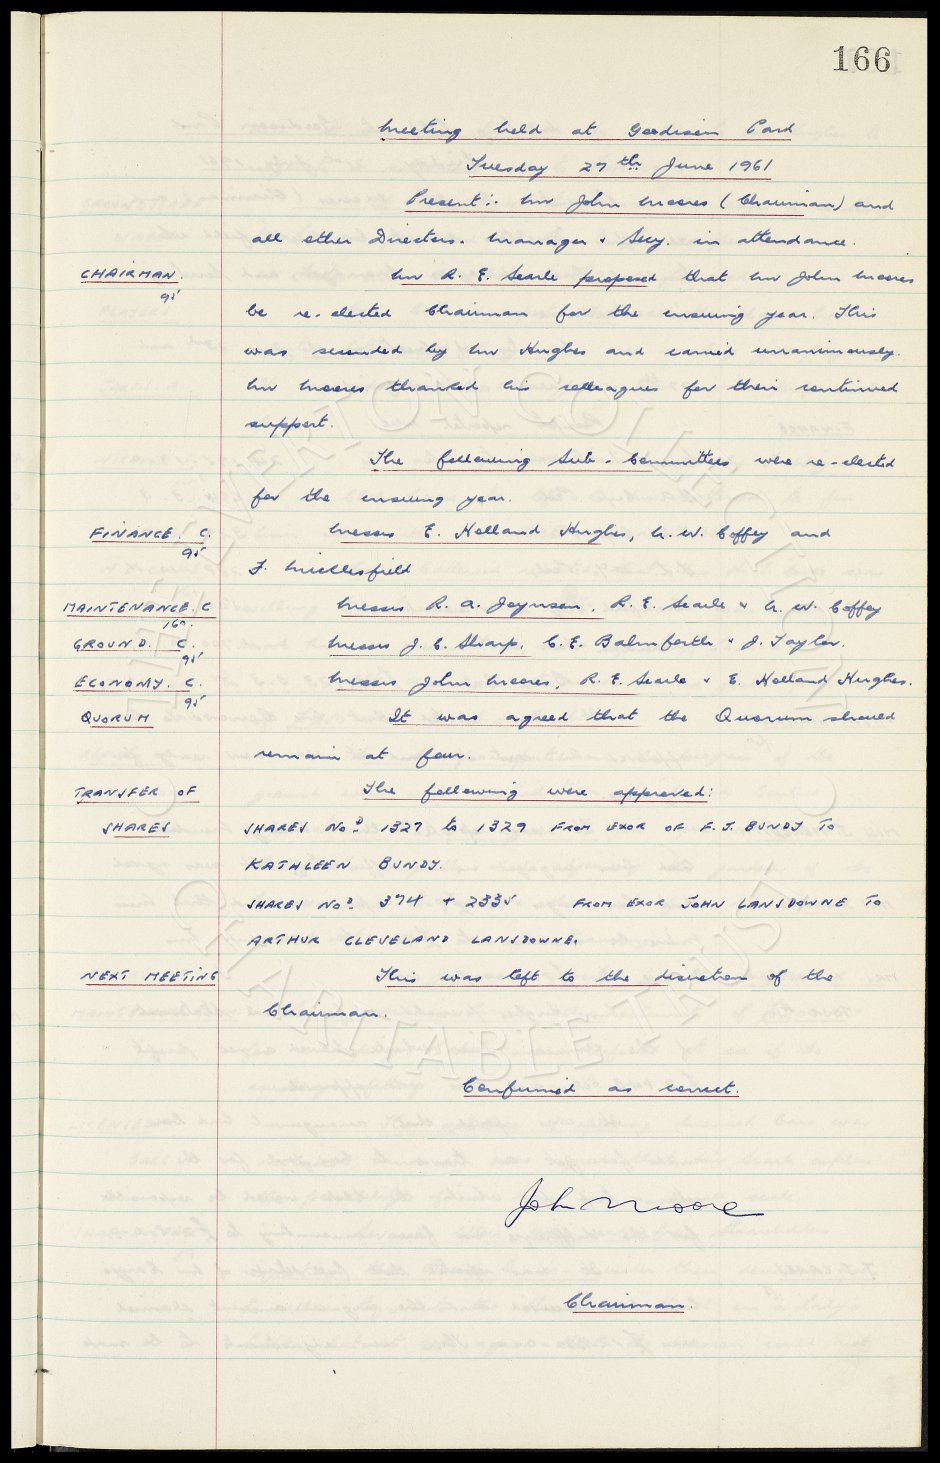 166
Meeting held at Goodison Park
Tuesday 27th June 1961
Present:- Mr John Moores (Chairman) and
all other Directors. Manager & Secy. in attendance.
CHAIRMAN. Mr R. E. Searle proposed that Mr John Moores
95
be re-elected Chairman for the ensuing year. This
was seconded by Mr Hughes and carried unanimously.
Mr Moores thanked his colleagues for their continued
support.
The following Sub-Committees were re-elected
for the ensuing year.
FINANCE. C. Messrs E. Holland Hughes, A. W. Coffey and
95
F. Micklesfield
MAINTENANCE. C Messrs R. A. Joynson, R. E. Searle & A. W. Coffey
160.
GROUND. C. Messrs J. C. Sharp, C. E. Balmforth & J. Taylor.
95
ECONOMY. C. Messrs John Moores, R. E. Searle & E. Holland Hughes.
95
QUORUM It was agreed that the Quorum should
remain at four.
TRANSFER OF The following were approved:
SHARES SHARES Nos 1327 to 1329 FROM EXOR OF F. J. BUNDY TO
KATHLEEN BUNDY.
SHARES Nos 374 + 2335 FROM EXOR JOHN LANSDOWNE TO
ARTHUR CLEVELAND LANSDOWNE.
NEXT MEETING This was left to the discretion of the
Chairman.
Confirmed as correct.
John Moores
Chairman.
THE EVERTON COLLECTION
CHARITABLE TRUST